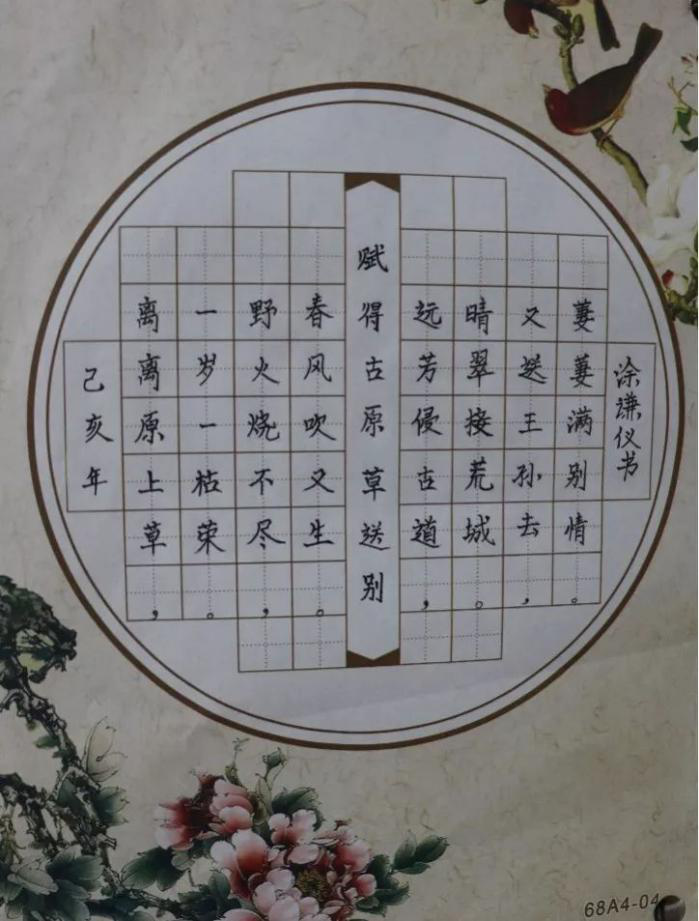 己亥年
离离原上草，
一岁一枯荣。
野火烧不尽，
春风吹又生。
赋得古原草送别
远芳侵古道，
晴翠接荒城。
又送王孙去，
萋萋满别情。
涂谦仪书
68A4-04